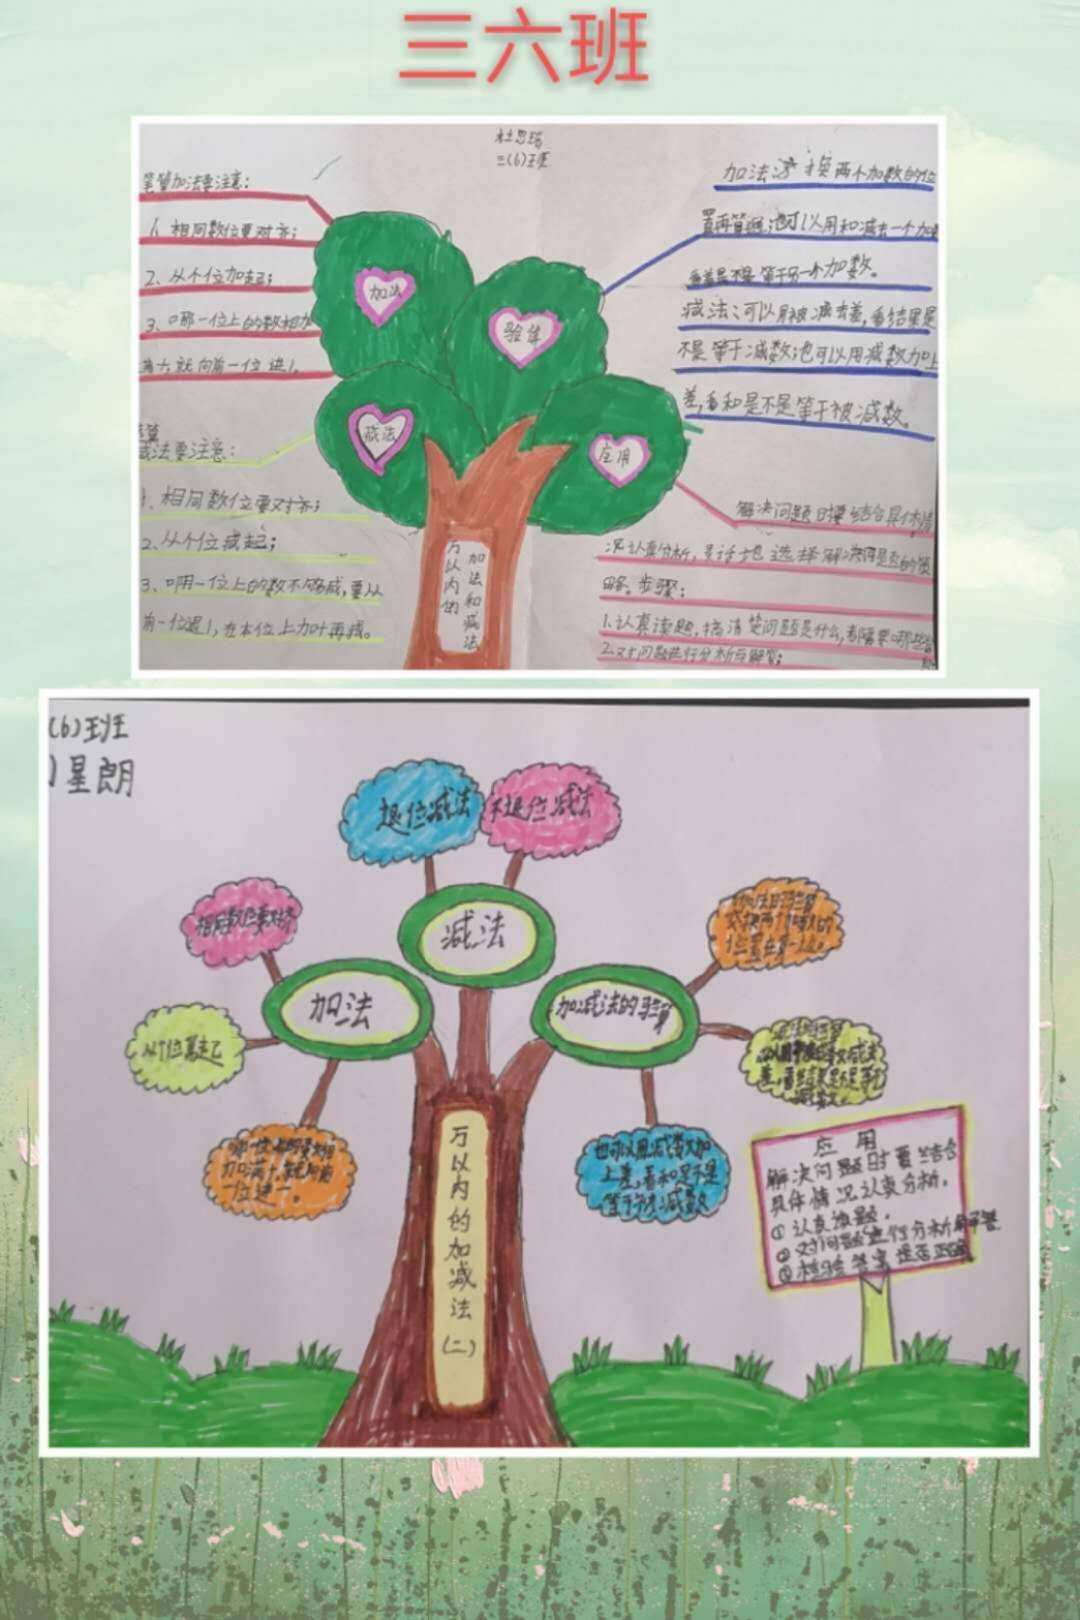 三六班
三(6)班
笔算加法要注意:
1、相同数位要对齐;
2、从个位加起;
3、哪一位上的数相加
满十就向前一位进1。
减法要注意:
1、相同数位要对齐;
2、从个位减起;
3、哪一位上的数不够减,要从
前一位退1,在本位上加十再减。
加法
验算
减法
应用
万以内的
加法和减法
加法:交换两个加数的位
置再算一遍;也可以用和减去一个加数
看差是不是等于另一个加数。
减法:可以用被减数减去差,看结果是
不是等于减数;也可以用减数加上
差,看和是不是等于被减数。
解决问题时要结合具体情
况认真分析,灵活地选择解决问题的策
略。步骤:
1.认真读题,搞清楚问题是什么,
2.对问题进行分析与解答;
(6)班
星朗
退位减法
不退位减法
相同数位要对齐
减法
加法
加减法的验算
从个位算起
加满十,就向前
一位进一。
交换两个加数的
位置再算一遍。
也可以用减数加
上差,看和是不是
等于被减数
万以内的加减法(二)
应用
解决问题时要结合
具体情况认真分析。
①认真读题。
②对问题进行分析解答
③检验答案是否正确